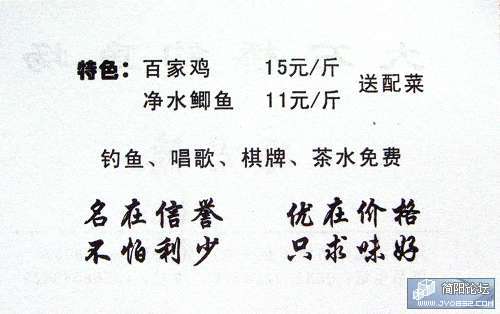 特色：百家鸡 15元/斤
净水鲫鱼 11元/斤 送配菜
钓鱼、唱歌、棋牌、茶水免费
名在信誉 优在价格
不怕利少 只求味好
简阳论坛